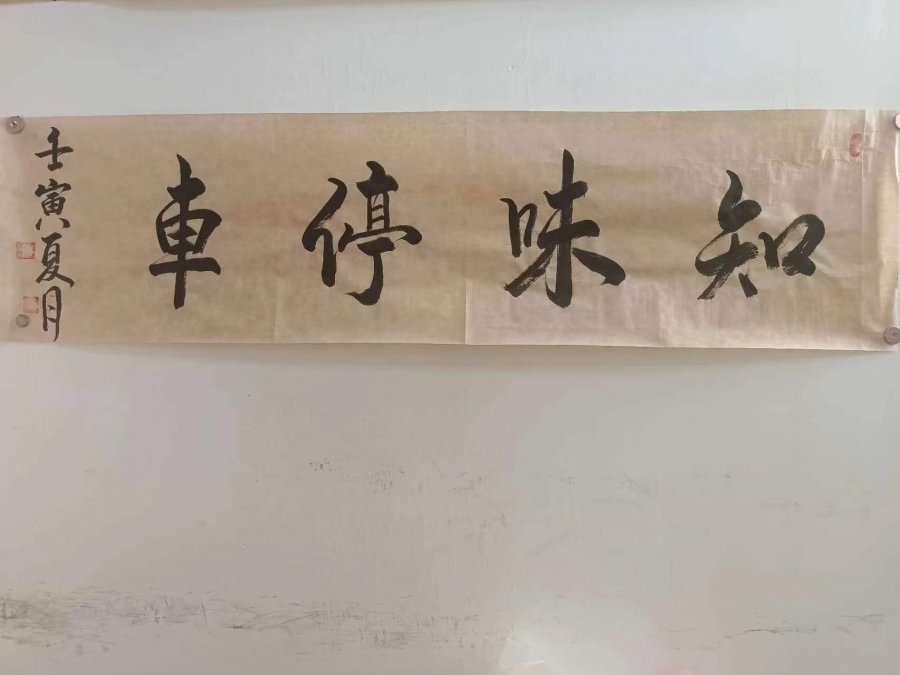 知味停車
壬寅夏月